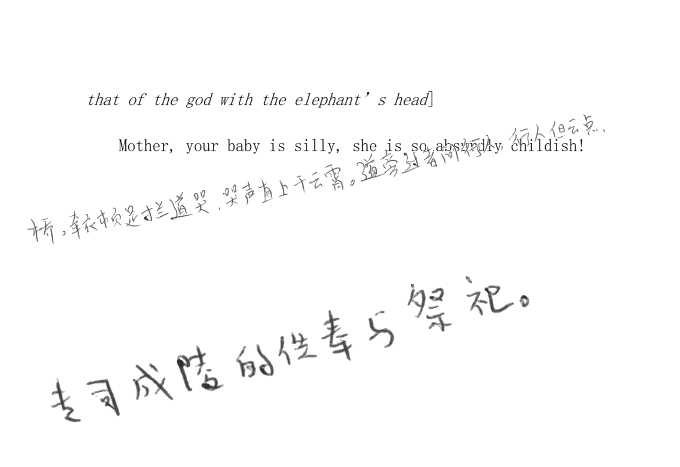 that of the god with the elephant’s head]
Mother, your baby is silly, she is so absurdly childish!
桥。牵衣顿足拦道哭,哭声直上干云霄。道旁过者问行人,行人但云点
专司成陵的供奉与祭祀。